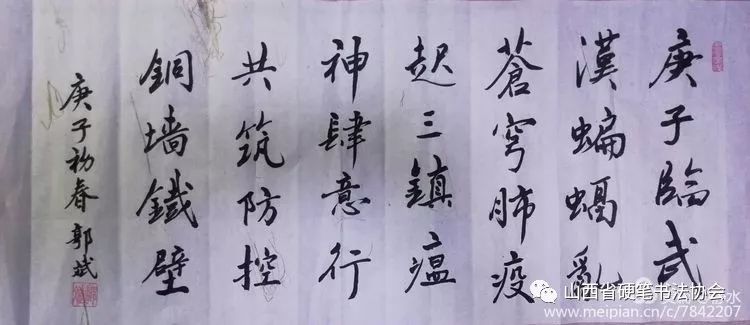 庚子臨武
漢蝙蝠亂
蒼穹肺疫
起三鎮瘟
神肆意行
共筑防控
銅墙鐵壁
庚子初春郭斌
山西省硬笔书法协会
www.meipian.cn/c/7842207